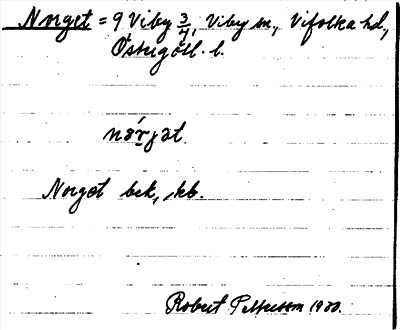 Norget = 9 Viby 3/4, Viby sn, Vifolka hd,
Östergötl. l.
Norget bek, skb.
Robert Pettersson 1933.